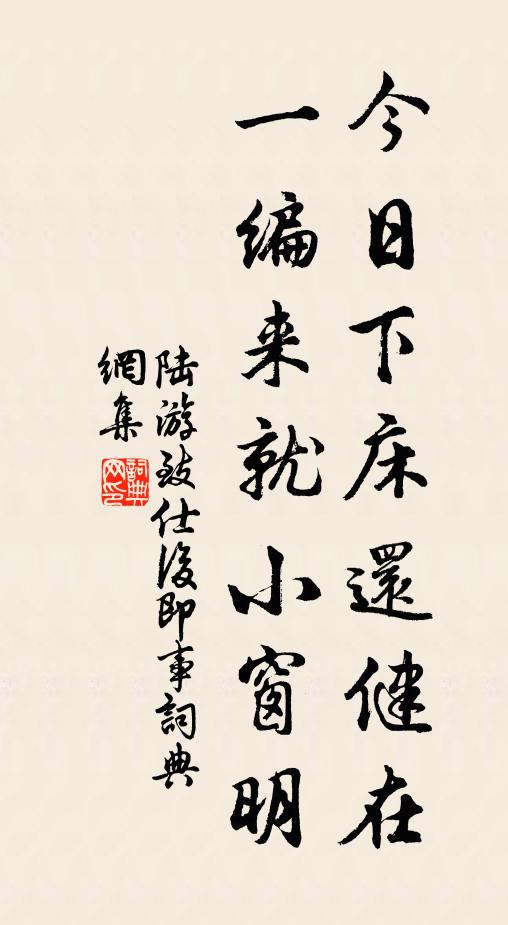 今日下床還健在
一編来就小窗明
陆游致仕後即事詞典
網集
詞典网印